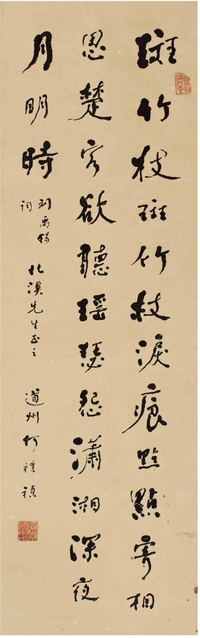 斑竹枝斑竹枝淚痕點點寄相
思楚客欲聽瑤瑟怨瀟湘深夜
月明時
劉禹錫
詞
先生正之
道州何